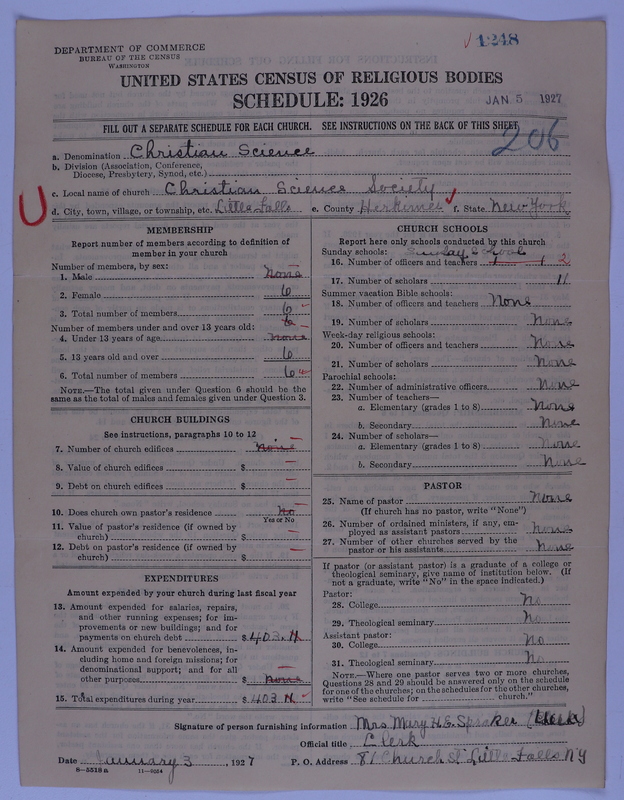 1248
DEPARTMENT OF COMMERCE
BUREAU OF THE CENSUS
WASHINGTON
UNITED STATES CENSUS OF RELIGIOUS BODIES
SCHEDULE: 1926
JAN 5 1927
FILL OUT A SEPARATE SCHEDULE FOR EACH CHURCH. SEE INSTRUCTIONS ON THE BACK OF THIS SHEET
206
a. Denomination Christian Science
b. Division (Association, Conference,
Diocese, Presbytery, Synod, etc.)
c. Local name of church Christian Science Society
d. City, town, village, or township, etc. Little Falls e. County Herkimer f. State New York
MEMBERSHIP
Report number of members according to definition of
member in your church
Number of members, by sex:
1. Male None
2. Female 6
3. Total number of members 6
Number of members under and over 13 years old: 6
4. Under 13 years of age None
5. 13 years old and over 6
6. Total number of members 6
NOTE.—The total given under Question 6 should be
same as the total of males and females given under Question 3.
CHURCH BUILDINGS
See instructions, paragraphs 10 to 12
7. Number of church edifices None
8. Value of church edifices $
9. Debt on church edifices $
10. Does church own pastor's residence No
Yes or No
11. Value of pastor's residence (if owned by
church) $
12. Debt on pastor's residence (if owned by
church) $
EXPENDITURES
Amount expended by your church during last fiscal year
13. Amount expended for salaries, repairs,
and other running expenses; for im-
provements or new buildings; and for
payments on church debt $403.
14. Amount expended for benevolences, in-
cluding home and foreign missions; for
denominational support; and for all
other purposes $ None
15. Total expenditures during year $403
CHURCH SCHOOLS
Report here only schools conducted by this church
Sunday schools: Sunday School
16. Number of officers and teachers 1 2
17. Number of scholars 11
Summer vacation Bible schools:
18. Number of officers and teachers None
19. Number of scholars None
Week-day religious schools:
20. Number of officers and teachers None
21. Number of scholars None
Parochial schools:
22. Number of administrative officers None
23. Number of teachers—
a. Elementary (grades 1 to 8) None
b. Secondary None
24. Number of scholars—
a. Elementary (grades 1 to 8) None
b. Secondary None
PASTOR
25. Name of pastor None
(If church has no pastor, write "None")
26. Number of ordained ministers, if any, em-
ployed as assistant pastors None
27. Number of other churches served by the
pastor or his assistants None
If pastor (or assistant pastor) is a graduate of a college or
theological seminary, give name of institution below. (If
not a graduate, write "No" in the space indicated.)
Pastor:
28. College No
29. Theological seminary No
Assistant pastor:
30. College No
31. Theological seminary No
NOTE.—Where one pastor serves two or more churches,
Questions 28 and 29 should be answered only on the schedule
for one of the churches; on the schedules for the other churches,
write "See schedule for church."
Signature of person furnishing information Mrs Mary H.E. Spraker (Clerk)
Official title Clerk
Date January 3, 1927 P. O. Address 81 Church St Little Falls NY
8—5518a 11—9054